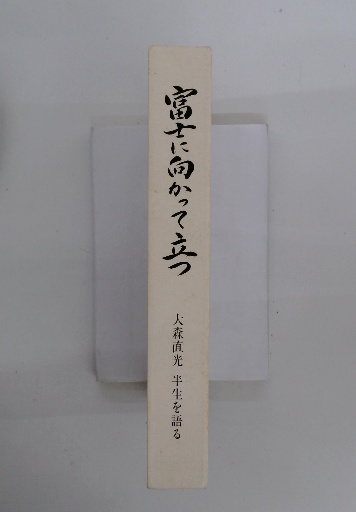 富士に向かって立つ
大森直光 半生を語る